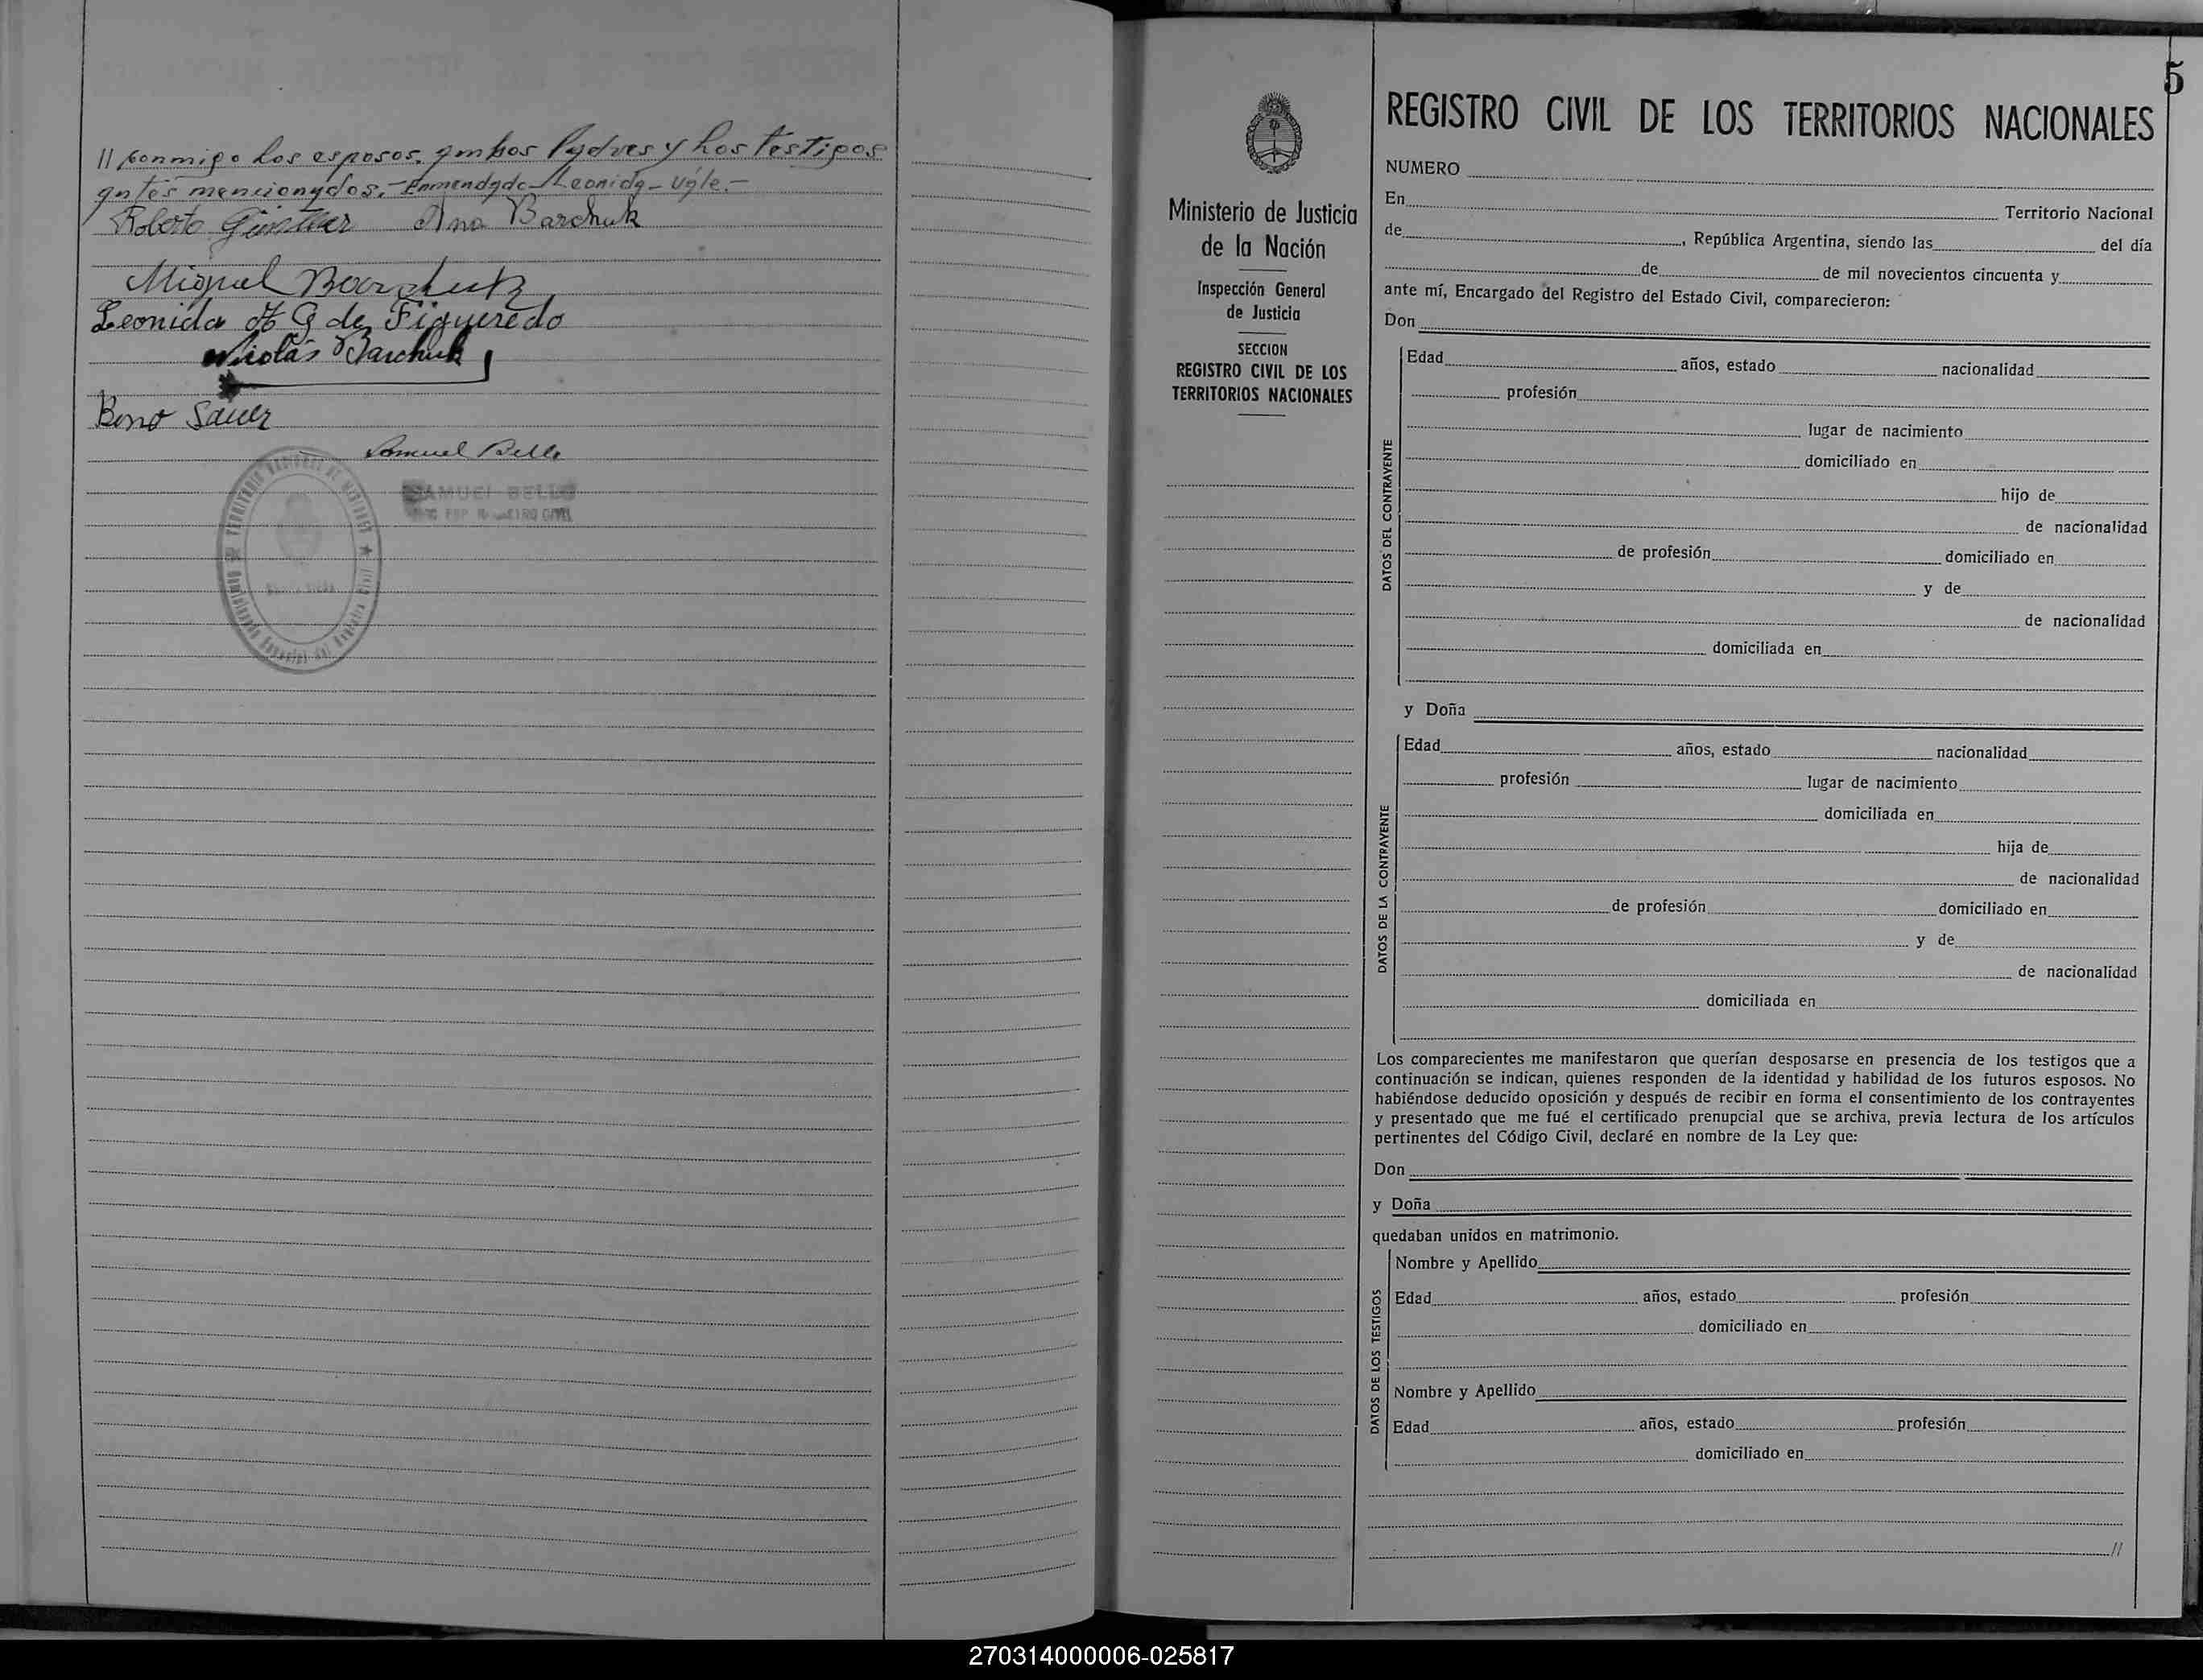 // conmigo los esposos, ambos Padres y los testigos
antes mencionados.- Enmendado- Leonida- Vale.-
Roberto Ana Barchuk
Miguel Barchuk
Leonida H G de Figueredo
Nicolás Barchuk
Beno Sauer
Samuel Bello
SAMUEL BELLO
REGISTRO CIVIL
TERRITORIO NACIONAL DE MISIONES
del Registro Civil
5
Ministerio de Justicia
de la Nación
Inspección General
de Justicia
SECCION
REGISTRO CIVIL DE LOS
TERRITORIOS NACIONALES
REGISTRO CIVIL DE LOS TERRITORIOS NACIONALES
NUMERO
En Territorio Nacional
de , República Argentina, siendo las del día
de de mil novecientos cincuenta y
ante mí, Encargado del Registro del Estado Civil, comparecieron:
Don
DATOS DEL CONTRAYENTE
Edad años, estado nacionalidad
profesión
lugar de nacimiento
domiciliado en
hijo de
de nacionalidad
de profesión domiciliado en
y de
de nacionalidad
domiciliada en
y Doña
DATOS DE LA CONTRAYENTE
Edad años, estado nacionalidad
profesión lugar de nacimiento
domiciliada en
hija de
de nacionalidad
de profesión domiciliado en
y de
de nacionalidad
domiciliada en
Los comparecientes me manifestaron que querían desposarse en presencia de los testigos que a
continuación se indican, quienes responden de la identidad y habilidad de los futuros esposos. No
habiéndose deducido oposición y después de recibir en forma el consentimiento de los contrayentes
y presentado que me fué el certificado prenupcial que se archiva, previa lectura de los artículos
pertinentes del Código Civil, declaré en nombre de la Ley que:
Don
y Doña
quedaban unidos en matrimonio.
DATOS DE LOS TESTIGOS
Nombre y Apellido
Edad años, estado profesión
domiciliado en
Nombre y Apellido
Edad años, estado profesión
domiciliado en
//
270314000006-025817